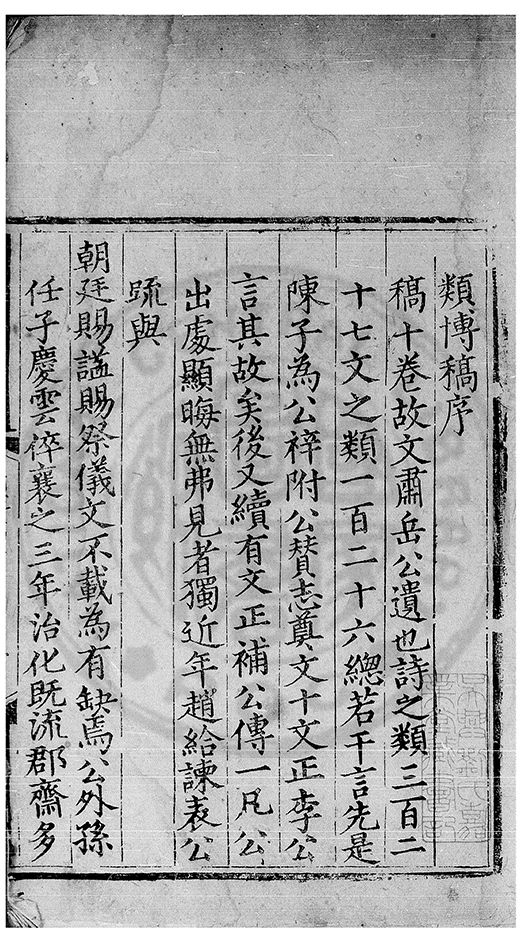 類博稿序
稿十卷故文肅岳公遺也詩之類三百二
十七文之類一百二十六總若干言先是
陳子為公梓附公贊志奠文十文正李公
言其故矣後又續有文正補公傳一凡公
出處顯晦無弗見者獨近年趙給諫表公
疏與
朝廷賜諡賜祭儀文不載為有缺焉公外孫
任子慶雲倅襄之三年治化既流郡齋多